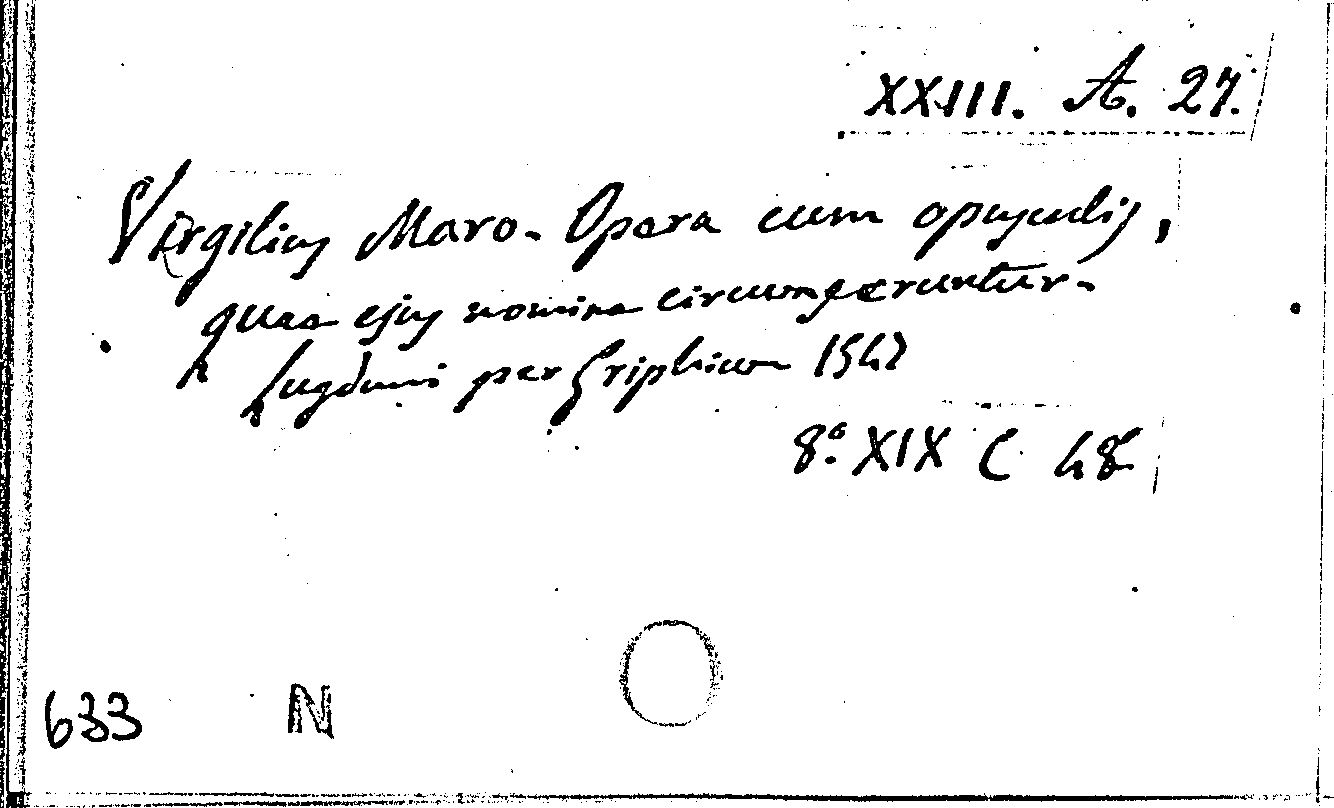 XXIII. A. 27.
Virgilius Maro. Opera cum opusculis,
quae ejus nomine circumferuntur.
Lugduni per Griphium 1547
8º. XIX C 48
633 N